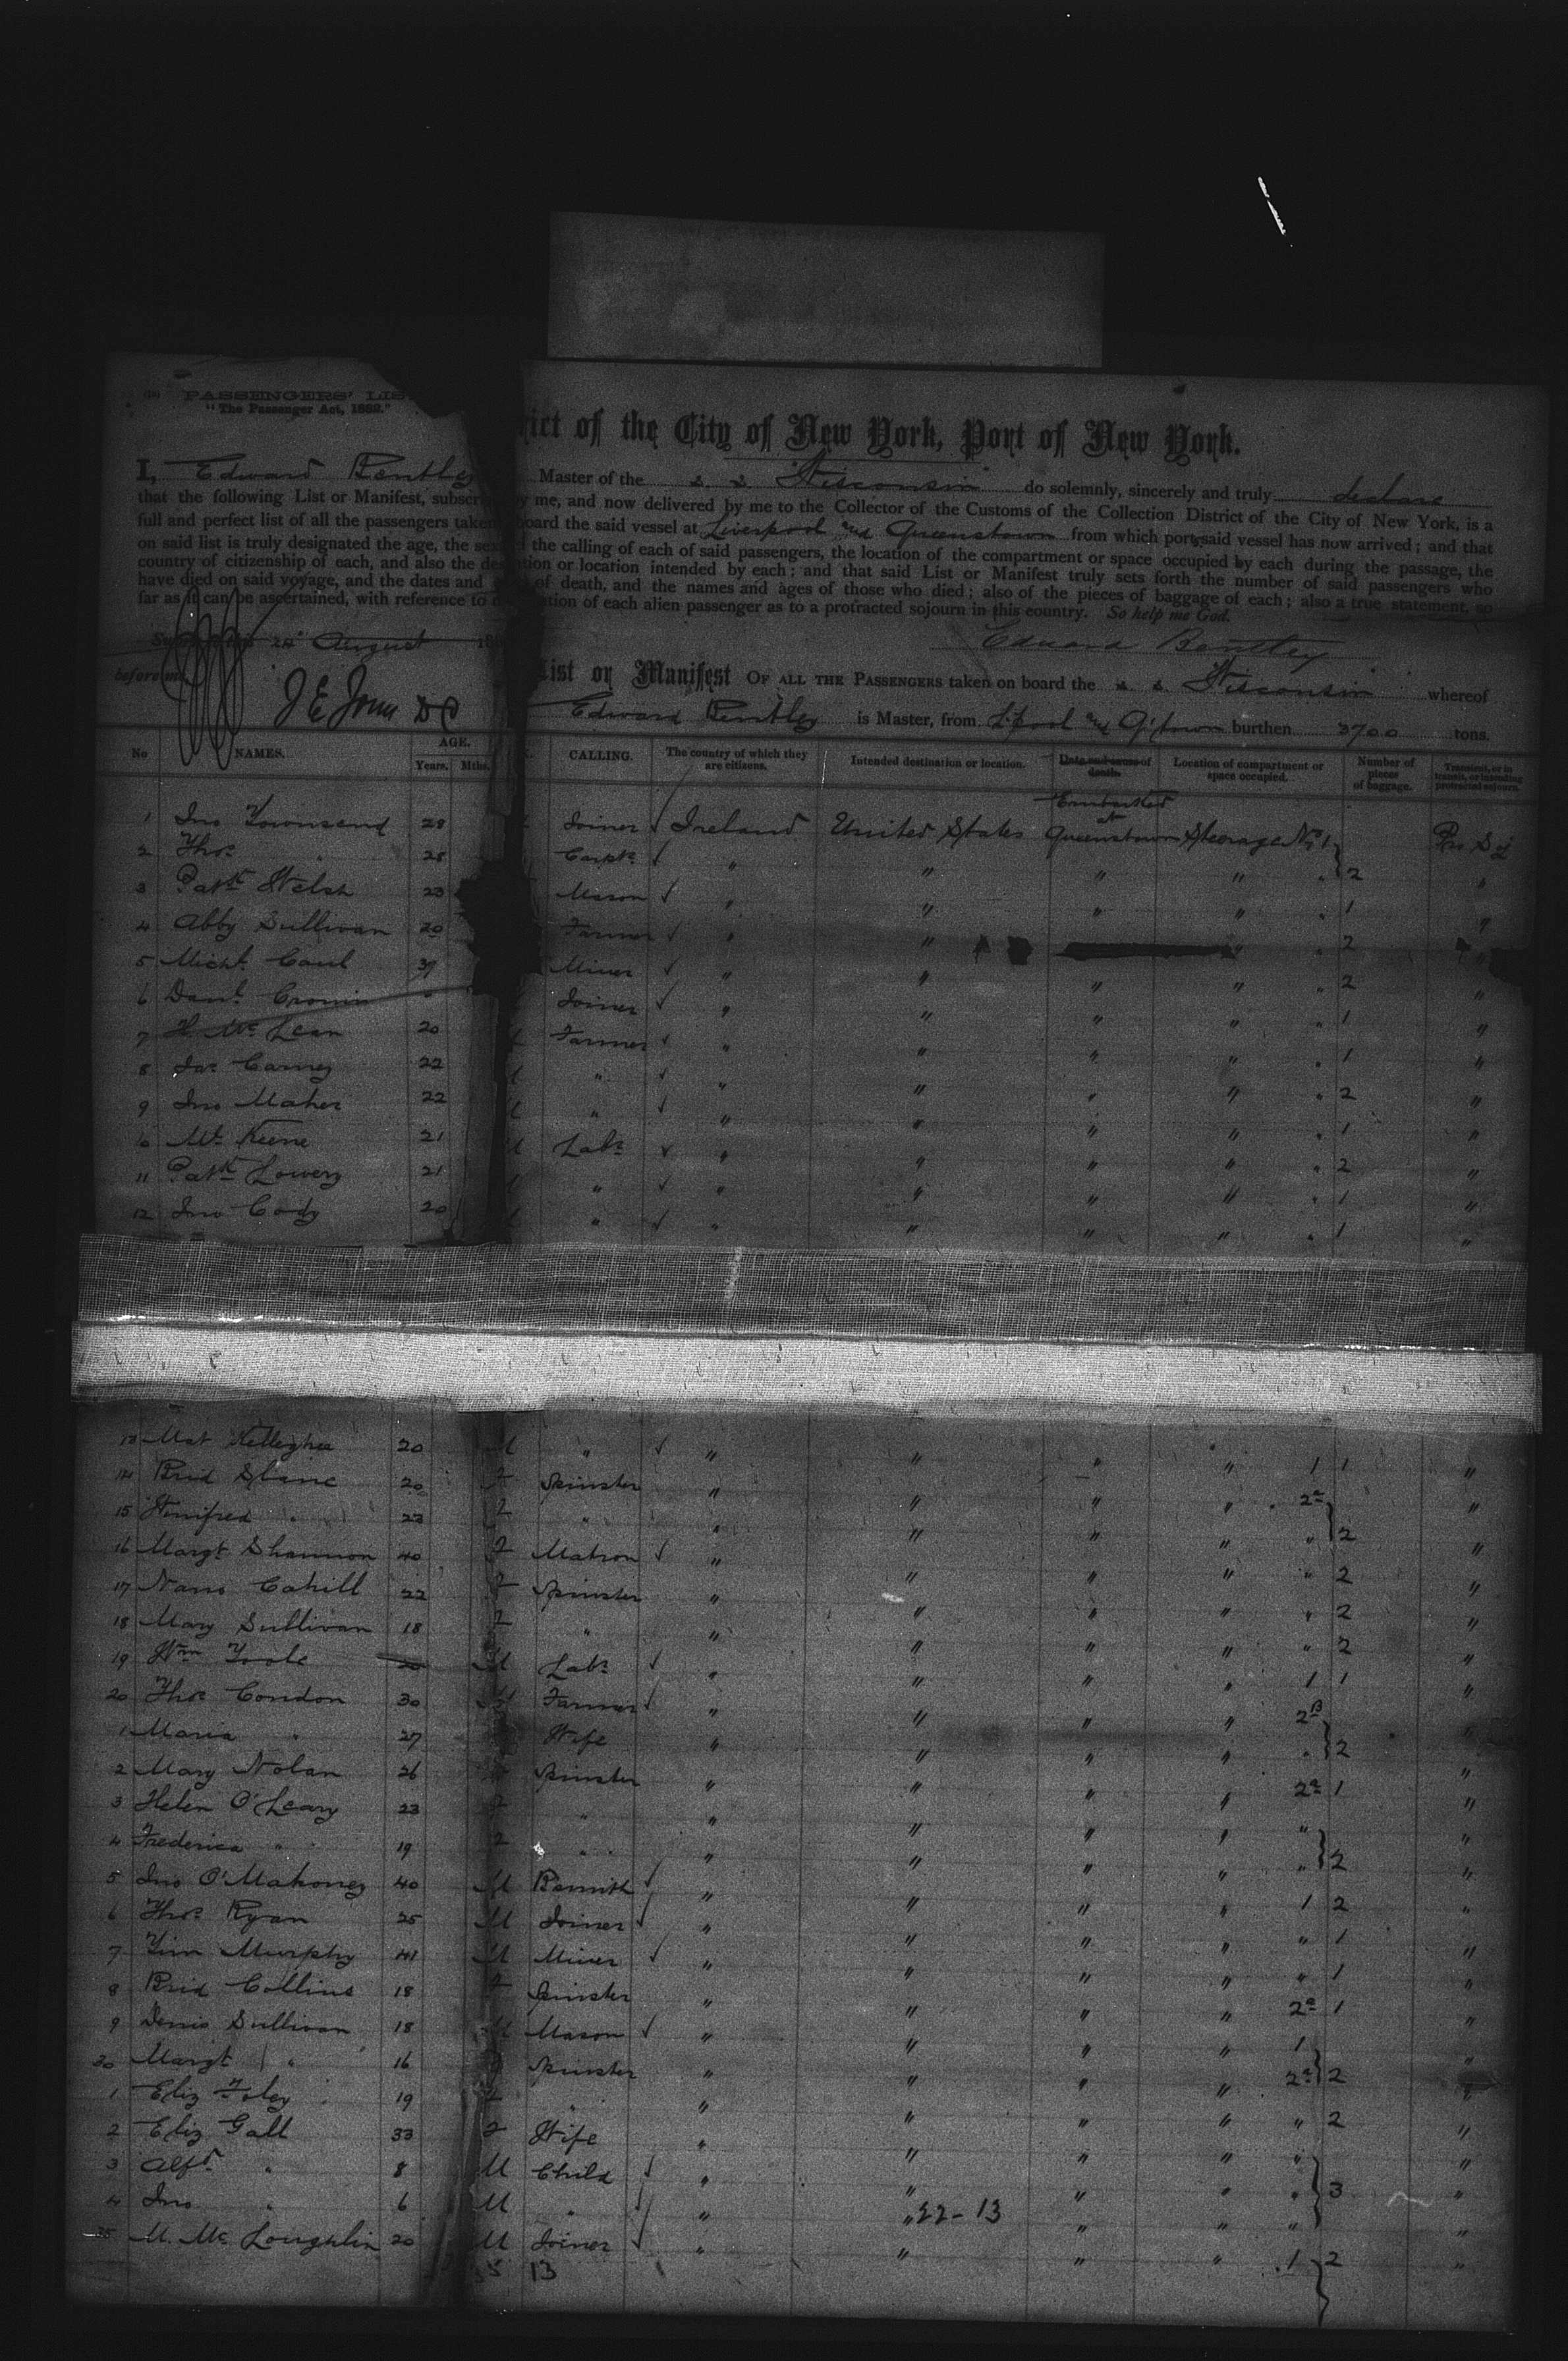 PASSENGERS' LIS
"The Passenger Act, 1882."
rict of the City of New York, Port of New York.
I, Edward Bentley Master of the s. s. Wisconsin do solemnly, sincerely and truly declare
that the following List or Manifest, subscri by me, and now delivered by me to the Collector of the Customs of the Collection District of the City of New York, is a
full and perfect list of all the passengers taken board the said vessel at Liverpool and Queenstown from which port said vessel has now arrived; and that
on said list is truly designated the age, the sex the calling of each of said passengers, the location of the compartment or space occupied by each during the passage, the
country of citizenship of each, and also the des tion or location intended by each; and that said List or Manifest truly sets forth the number of said passengers who
have died on said voyage, and the dates and of death, and the names and ages of those who died; also of the pieces of baggage of each; also a true statement, so
far as it can be ascertained, with reference to ation of each alien passenger as to a protracted sojourn in this country. So help me God.
24 August 18 Edward Bentley
before me
List or Manifest OF ALL THE PASSENGERS taken on board the s. s. Wisconsin whereof
Edward Bentley is Master, from L'pool and Q'town burthen 3700 tons.
No NAMES. AGE. Years. Mths. CALLING. The country of which they are citizens. Intended destination or location. Date and cause of death. Location of compartment or space occupied. Number of pieces of baggage. Transient, or in transit, or intending protracted sojourn.
Embarked at
1 Jno Townsend 28 Joiner Ireland United States Queenstown Steerage No 1 Pro Soj
2 Thos " 28 Carptr " " " " " 2 "
3 Patk Welsh 23 Mason " " " " " 1 "
4 Abby Sullivan 20 Farmer " " " " 2 "
5 Michl Caul 37 Miner " " " " " 2 "
6 Danl Cronin Joiner " " " " " 1 "
7 H. Mc Lean 20 Farmer " " " " " 1 "
8 Jas Carney 22 " " " " " " 2 "
9 Jno Maher 22 " " " " " " 1 "
10 Mt Keene 21 Labr " " " " " 2 "
11 Patk Lowery 21 " " " " " " 1 "
12 Jno Cody 20 " " " " " " 1 "
13 Mat 20 M " " " " " 1 1 "
14 Brid Slaine 20 F Spinster " " " " 2a "
15 Winifred " 23 F " " " " " " 2 "
16 Margt Shannon 40 F Matron " " " " " 2 "
17 Nano Cahill 22 F Spinster " " " " " 2 "
18 Mary Sullivan 18 F " " " " " " 2 "
19 Wm Toole 20 M Labr " " " " 1 1 "
20 Thos Condon 30 M Farmer " " " " 2B "
1 Maria " 27 Wife " " " " " 2
2 Mary Nolan 26 Spinster " " " " 2a 1 "
3 Helen O'Leary 23 F " " " " " " "
4 Frederica " 19 F " " " " " " 2 "
5 Jno O'Mahoney 40 M Bsmith " " " " 1 2 "
6 Thos Ryan 25 M Joiner " " " " " 1 "
7 Tim Murphy 41 M Miner " " " " " 1 "
8 Brid Collins 18 F Spinster " " " " 2a 1 "
9 Denis Sullivan 18 M Mason " " " " 1 "
30 Margt " 16 F Spinster " " " " 2a 2 "
1 Eliz Foley 19 F " " " " " " 2 "
2 Eliz Gall 33 F Wife " " " " " "
3 Alfd " 8 M Child " " " " " 3 "
4 Jno " 6 M " " " 22-13 " " " "
35 M. Mc Loughlin 20 M Joiner " " " " 1 2 "
13